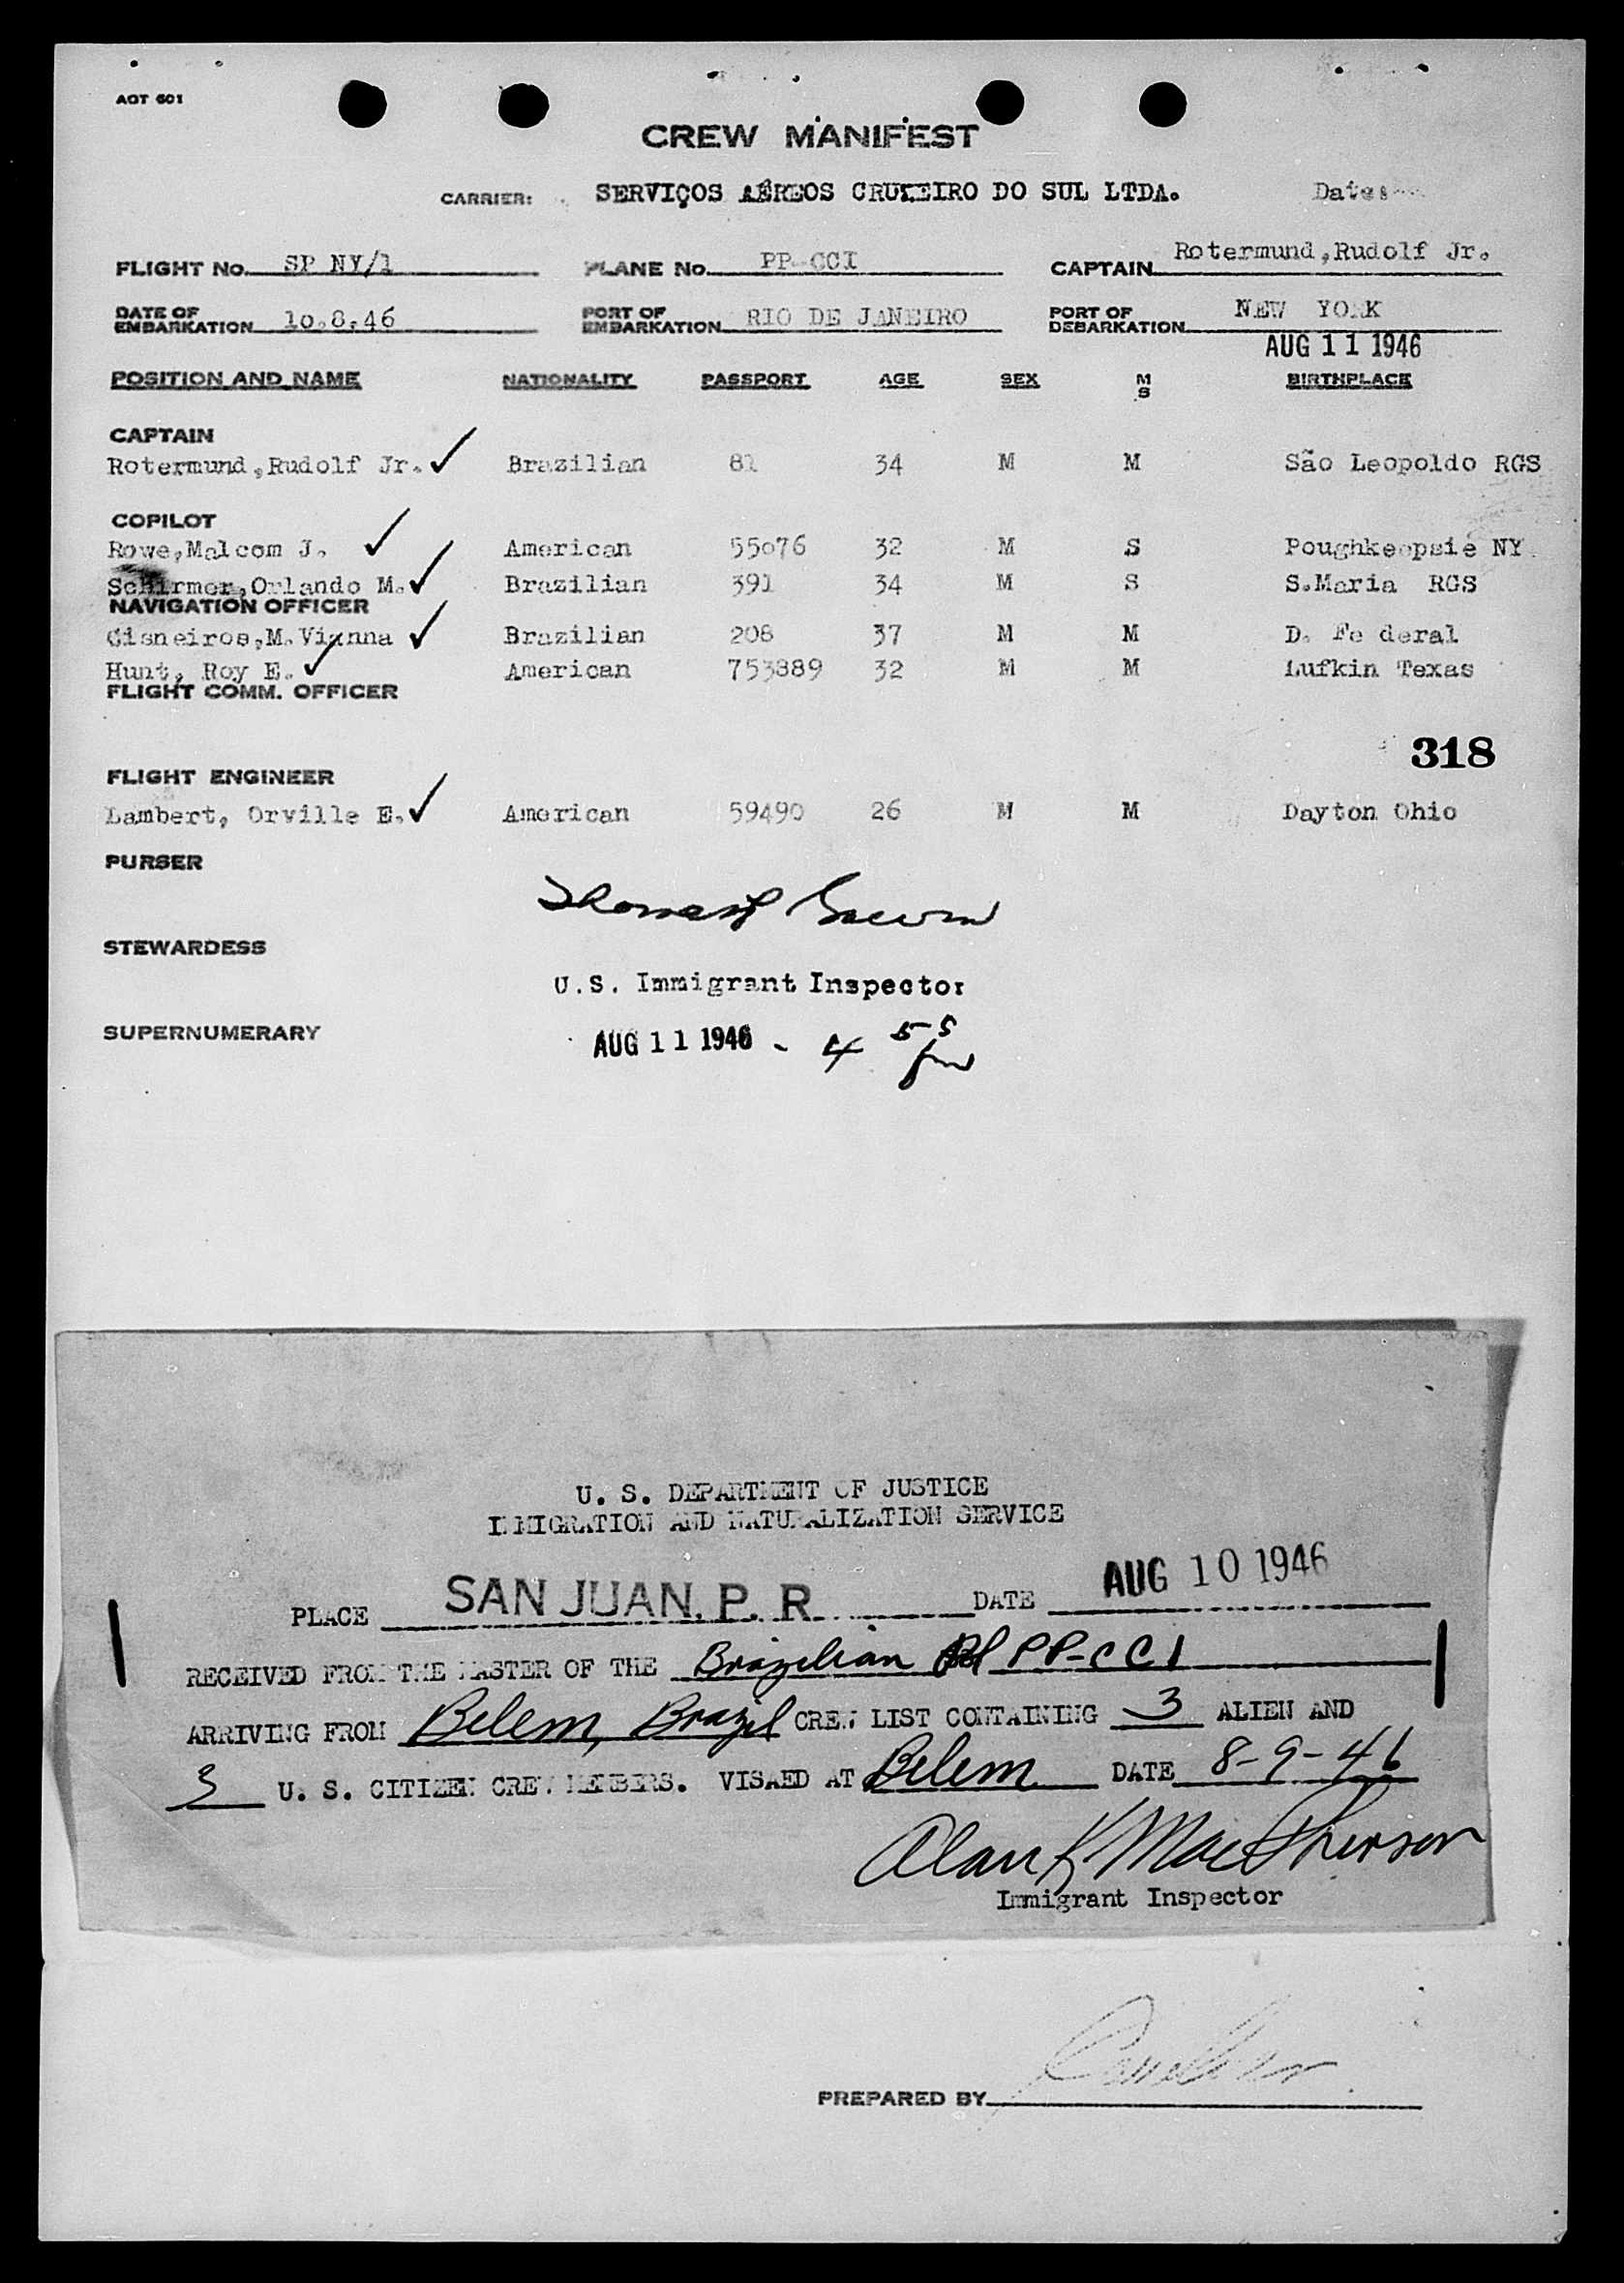 AOT 601
CREW MANIFEST
CARRIER: SERVIÇOS AÉREOS CRUZEIRO DO SUL LTDA. Date:
FLIGHT No. SP NY/1 PLANE No. PP-CCI CAPTAIN Rotermund,Rudolf Jr.
DATE OF EMBARKATION 1o.8.46 PORT OF EMBARKATION RIO DE JANEIRO PORT OF DEBARKATION NEW YORK
AUG 11 1946
POSITION AND NAME NATIONALITY PASSPORT AGE SEX M S BIRTHPLACE
CAPTAIN
Rotermund,Rudolf Jr. ✓ Brazilian 81 34 M M São Leopoldo RGS
COPILOT
Rowe,Malcom J. ✓ American 55o76 32 M S Poughkeepsie NY
Schirmer,Orlando M. ✓ Brazilian 391 34 M S S.Maria RGS
NAVIGATION OFFICER
Cisneiros,M.Vianna ✓ Brazilian 208 37 M M D. Fe deral
Hunt, Roy E. ✓ American 753889 32 M M Lufkin Texas
FLIGHT COMM. OFFICER
318
FLIGHT ENGINEER
Lambert, Orville E. ✓ American 59490 26 M M Dayton Ohio
PURSER
STEWARDESS
U.S. Immigrant Inspector
SUPERNUMERARY AUG 11 1946 - 4 55 pm
U. S. DEPARTMENT OF JUSTICE
IMMIGRATION AND NATURALIZATION SERVICE
PLACE SAN JUAN, P. R. DATE AUG 10 1946
RECEIVED FROM THE MASTER OF THE Brazilian Pl PP-CCI
ARRIVING FROM Belem, Brazil CREW LIST CONTAINING 3 ALIEN AND
3 U. S. CITIZEN CREW MEMBERS. VISAED AT Belem DATE 8-9-46
Alan K MacPherson
Immigrant Inspector
PREPARED BY